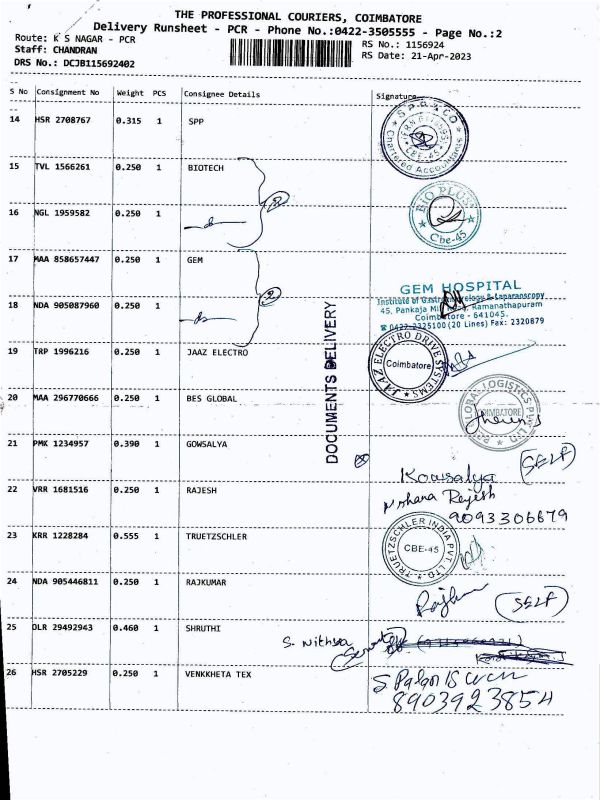 THE PROFESSIONAL COURIERS, COIMBATORE
Delivery Runsheet - PCR - Phone No.:0422-3505555 - Page No.:2
Route: K S NAGAR - PCR
RS No.: 1156924
Staff: CHANDRAN
RS Date: 21-Apr-2023
DRS No.: DCJB115692402
S No Consignment No Weight PCS Consignee Details Signature
14 HSR 2708767 0.315 1 SPP
SPP & CO
Chartered Accountants
CBE-45
15 TVL 1566261 0.250 1 BIOTECH
BIO PLUS
Cbe-45
16 NGL 1959582 0.250 1
17 MAA 858657447 0.250 1 GEM
GEM HOSPITAL
Institute of Gastroenterology & Laparoscopy
45, Pankaja Mill Road, Ramanathapuram
Coimbatore - 641045.
0422-2325100 (20 Lines) Fax: 2320879
18 NDA 905087960 0.250 1
DOCUMENTS DELIVERY
19 TRP 1996216 0.250 1 JAAZ ELECTRO
JAAZ ELECTRO DRIVE SYSTEMS
Coimbatore
20 MAA 296770666 0.250 1 BES GLOBAL
GLOBAL LOGISTICS PVT LTD
COIMBATORE
21 PMK 1234957 0.390 1 GOWSALYA
Kowsalya (SELF)
22 VRR 1681516 0.250 1 RAJESH
Mohana Rajesh
9093306679
23 KRR 1228284 0.555 1 TRUETZSCHLER
TRUETZSCHLER INDIA PVT LTD.
CBE-45
24 NDA 905446811 0.250 1 RAJKUMAR
(SELF)
25 DLR 29492943 0.460 1 SHRUTHI
S. Nithya
26 HSR 2705229 0.250 1 VENKKHETA TEX
8903923854